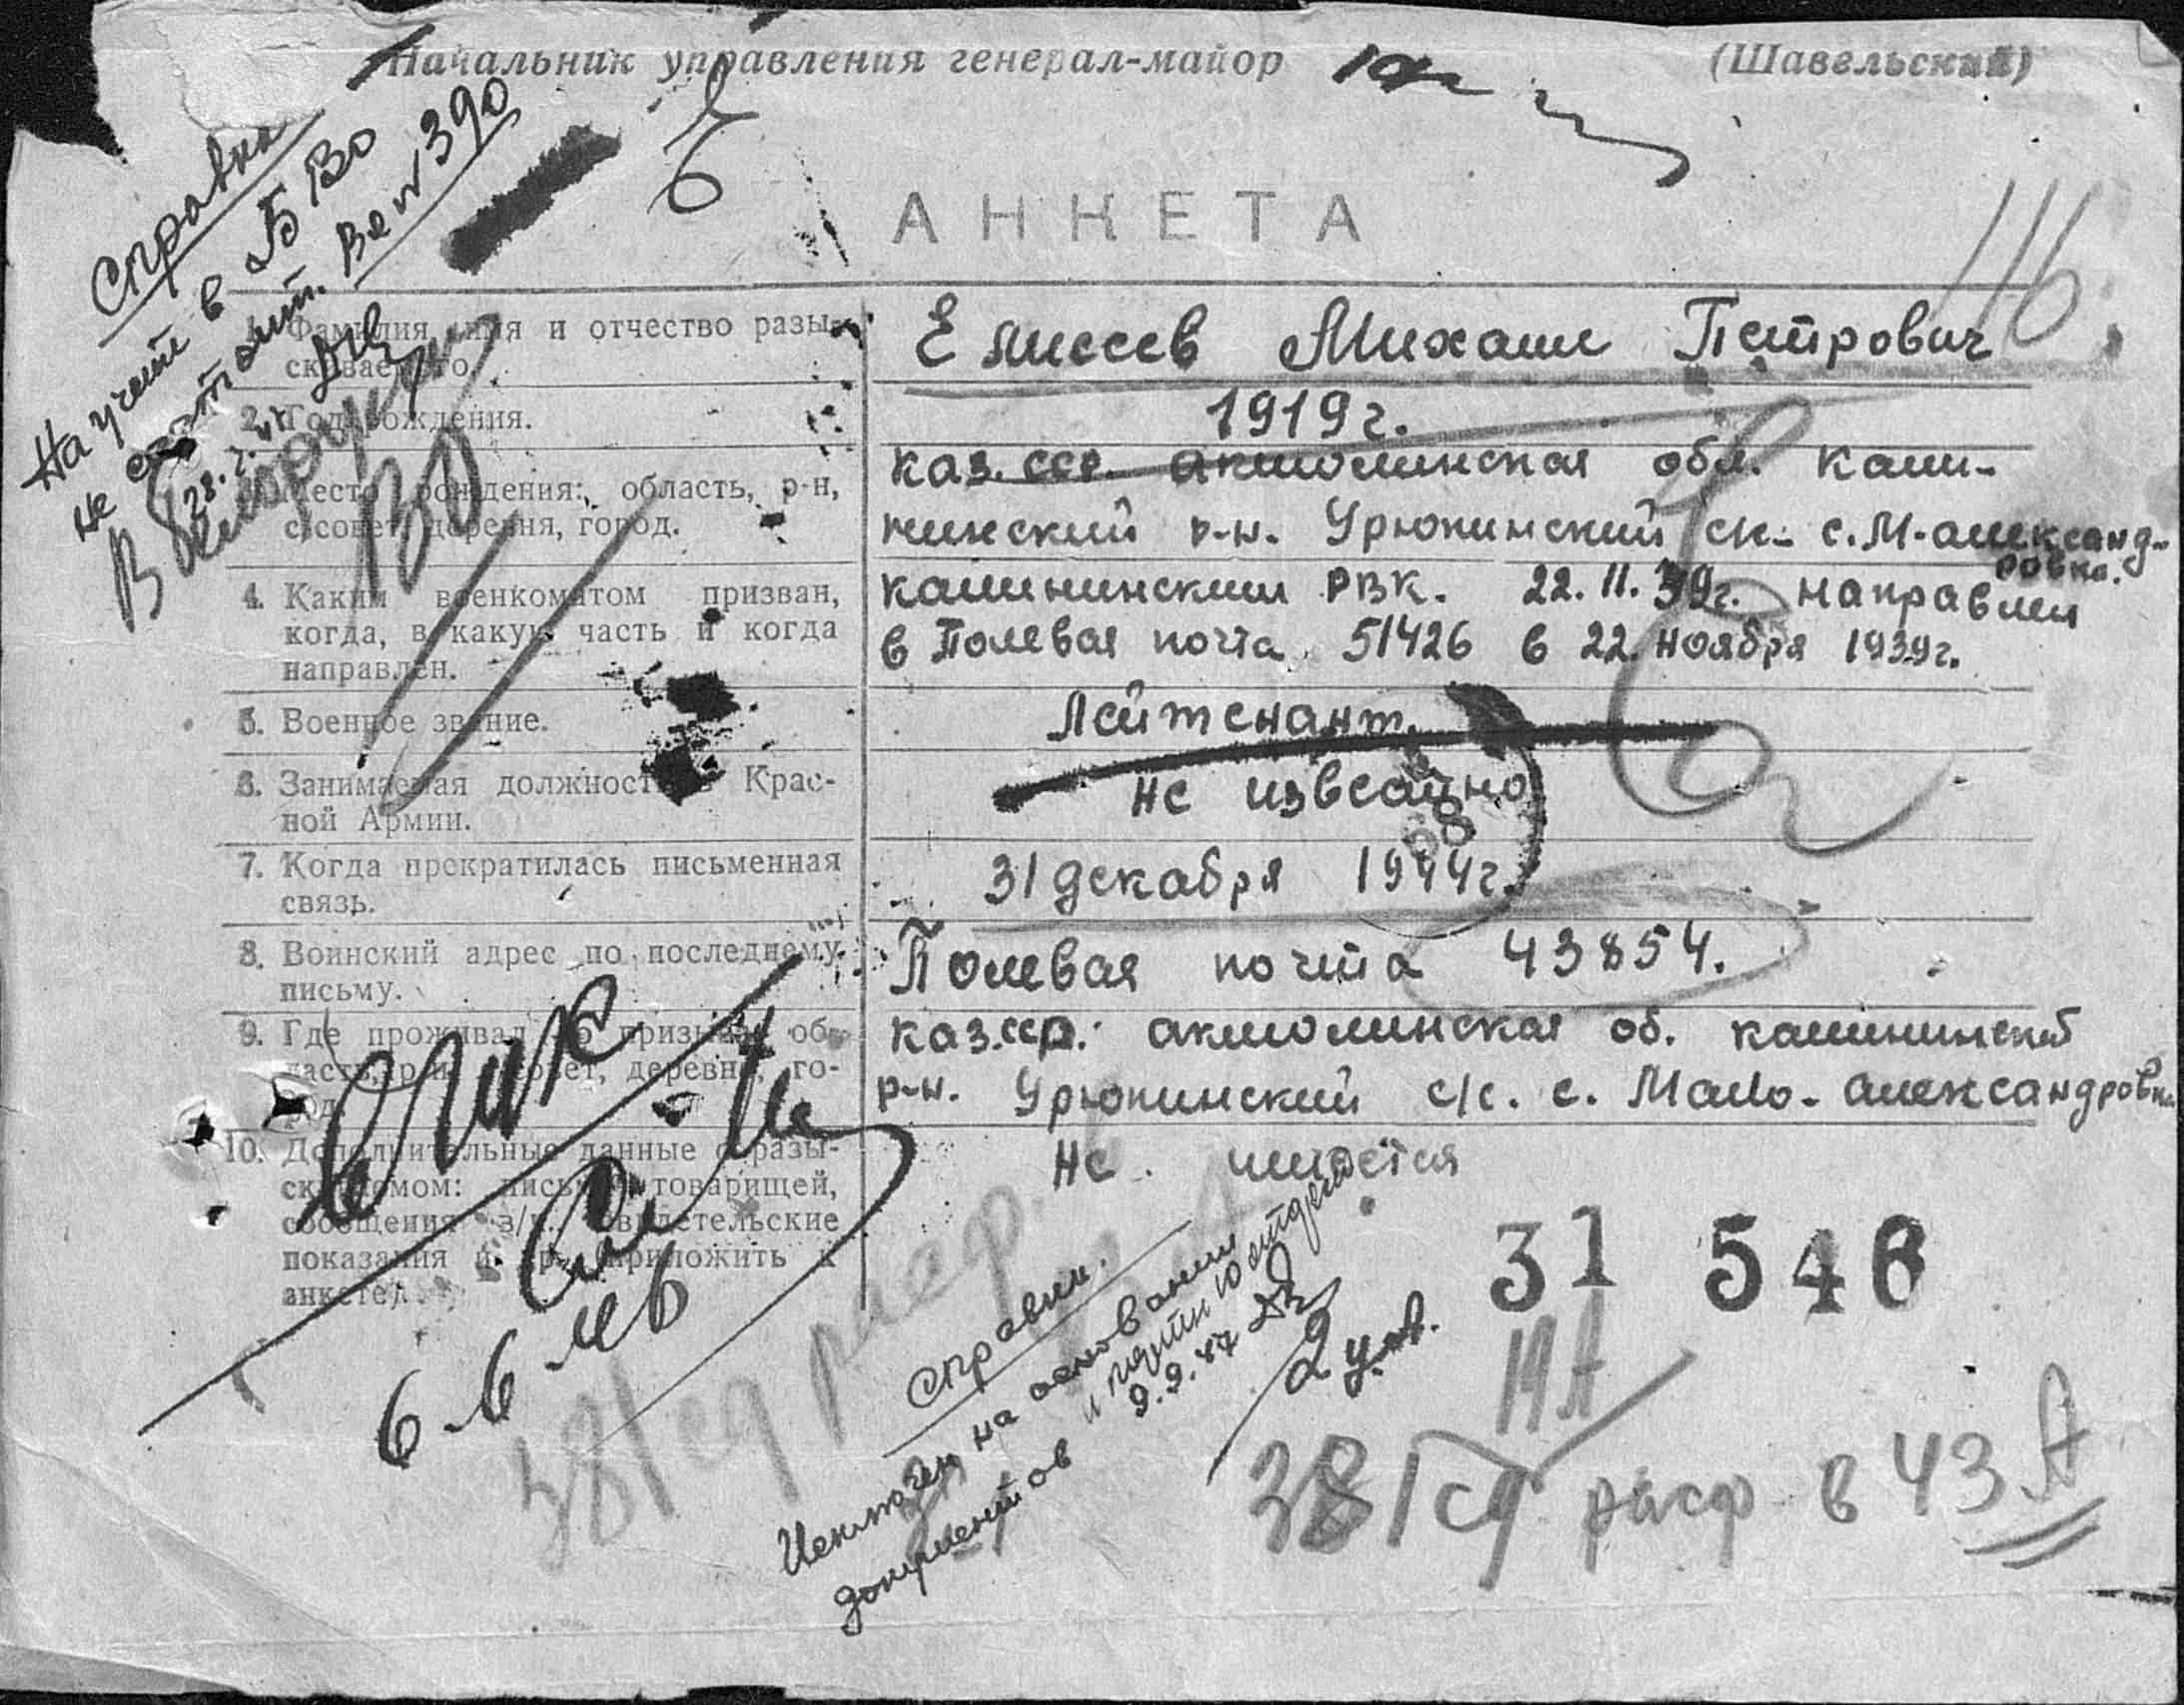 Начальник управления генерал-майор (Шавельский)
Справка
На учете в БВО
не состоит. Вх №390
28.2.47
В Белорусск
ВО
АНКЕТА
116
1. Фамилия, имя и отчество разы-
скиваемого.
Елисеев Михаил Петрович
2. Год рождения.
1919г.
3. Место рождения: область, р-н,
с/совет, деревня, город.
каз. сср. акмолинская обл. кали-
нинский р-н. Урюпинский с/с. с. М-александ-
ровка.
4. Каким военкоматом призван,
когда, в какую часть и когда
направлен.
калининским РВК. 22.11.39г. направлен
в Полевая почта 51426 в 22. ноября 1939г.
5. Военное звание.
Лейтенант.
6. Занимаемая должность в Крас-
ной Армии.
не известно
7. Когда прекратилась письменная
связь.
31 декабря 1944г.
8. Воинский адрес по последнему
письму.
Полевая почта 43854.
9. Где проживал до призыва: об-
ласть, р-н, с/совет, деревня, го-
род.
каз.сср. акмолинская об. калининский
р-н. Урюпинский с/с. с. Мало-александровка
10. Дополнительные данные о разы-
скиваемом: письма товарищей,
сообщения в/ч., свидетельские
показания и пр. (приложить к
анкете).
Не имеется
31 546
6.6.46
Справка.
на основании
документов
9.9.47
19А
38 Гсд расф в 43 А